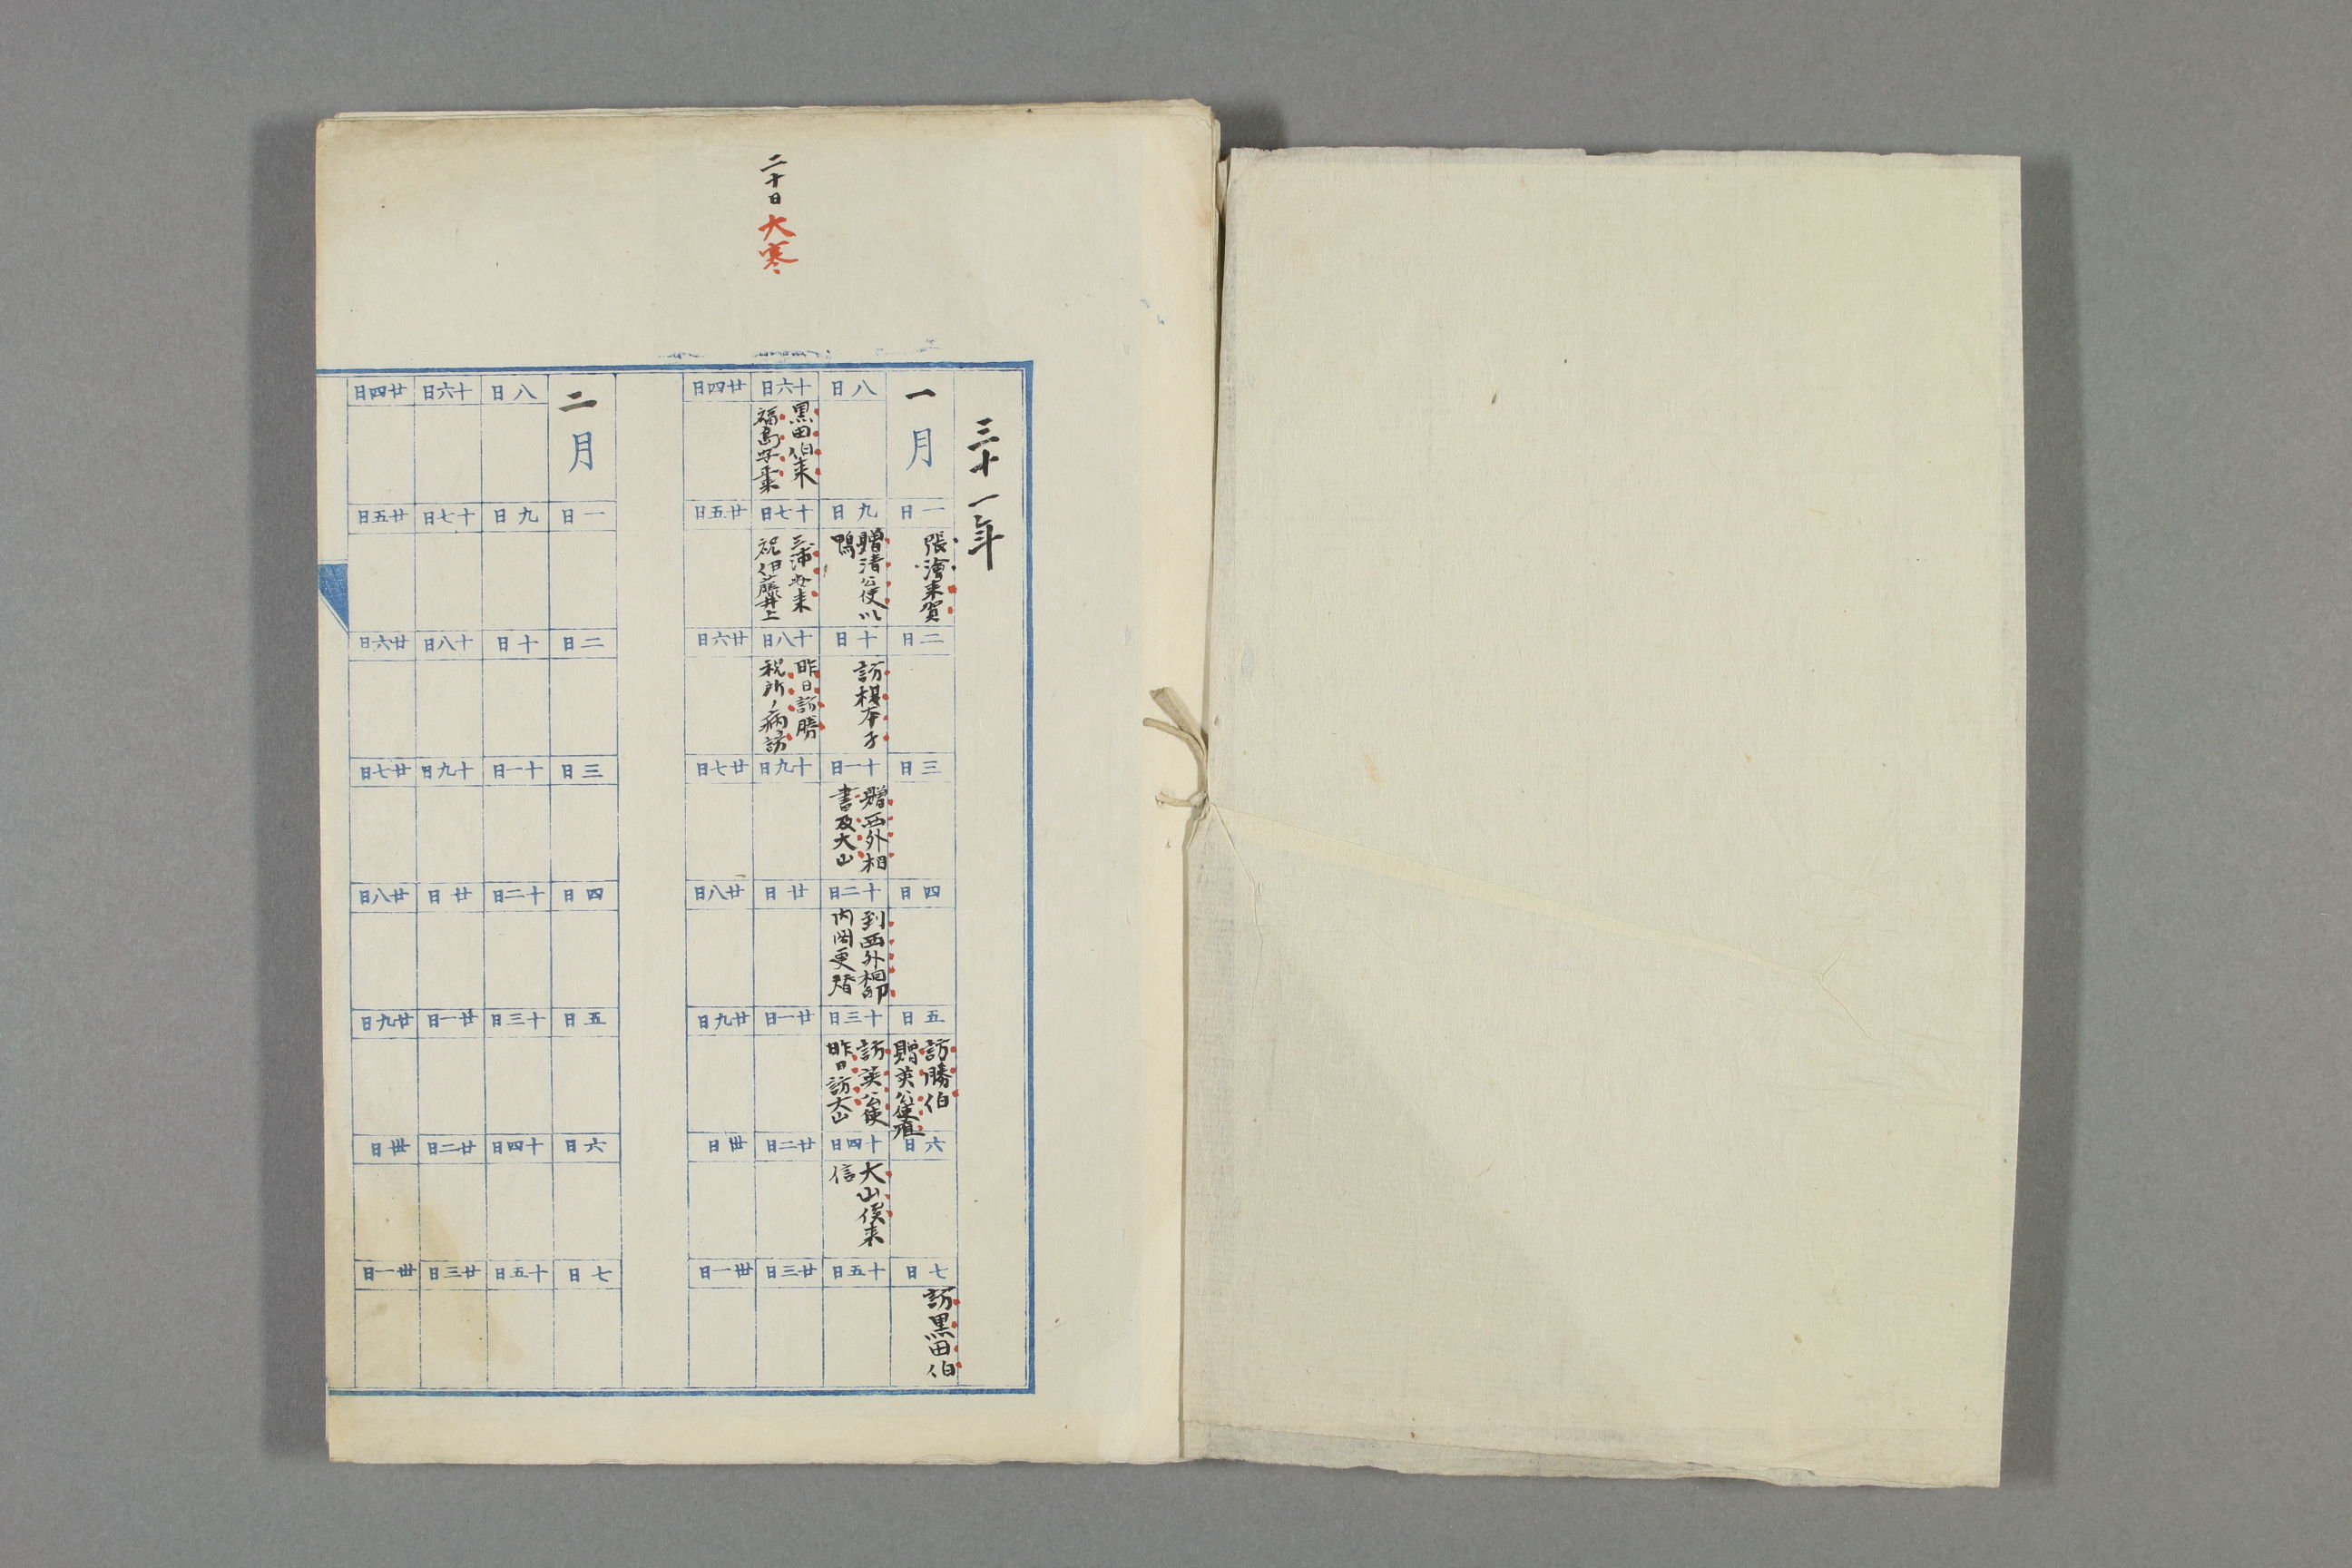 二十日大寒
三十一年
一月
一日
張滄来賀
二日
三日
四日
五日
訪勝伯
贈英公使
六日
七日
訪黒田伯
八日
九日
贈清公使以
鴨
十日
訪榎本子
十一日
贈西外相
書及大山
十二日
到西外相邸
内閣更替
十三日
訪英公使
昨日訪大山
十四日
大山侯来
信
十五日
十六日
黒田伯来
福島安来
十七日
三浦安来
祝伊藤井上
十八日
昨日訪勝
税所ノ病訪
十九日
廿日
廿一日
廿二日
廿三日
廿四日
廿五日
廿六日
廿七日
廿八日
廿九日
卅日
卅一日
二月
一日
二日
三日
四日
五日
六日
七日
八日
九日
十日
十一日
十二日
十三日
十四日
十五日
十六日
十七日
十八日
十九日
廿日
廿一日
廿二日
廿三日
廿四日
廿五日
廿六日
廿七日
廿八日
廿九日
卅日
卅一日